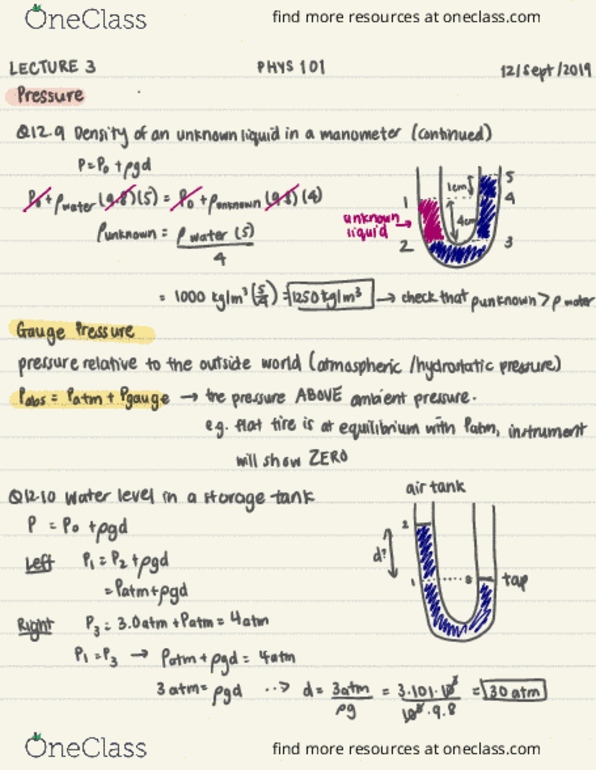 OneClass
find more resources at oneclass.com
LECTURE 3 PHYS 101 12/Sept/2019
Pressure
Q12.9 Density of an unknown liquid in a manometer (continued)
P=P₀+ρgd
P₀+ρwater(9.8)(5) = P₀+ρunknown(9.8)(4)
ρunknown = ρwater(5)
4
1cm
5
4
1
4cm
unknown
liquid
2
3
= 1000 kg/m³ (5/4) = 1250kg/m³ → check that ρunknown > ρwater
Gauge Pressure
pressure relative to the outside world (atmospheric /hydrostatic pressure)
Pabs = Patm + Pgauge → the pressure ABOVE ambient pressure.
e.g. flat tire is at equilibrium with Patm, instrument
will show ZERO
Q12.10 Water level in a storage tank
air tank
P = P₀ + ρgd
2
Left P₁=P₂+ρgd
d?
=Patm+ρgd
1
tap
Right P₃ = 3.0atm +Patm = 4atm
P₁=P₃ → Patm + ρgd = 4atm
3 atm= ρgd ··> d= 3atm = 3·101·10³ = 30 atm
ρg 10³·9.8
OneClass
find more resources at oneclass.com